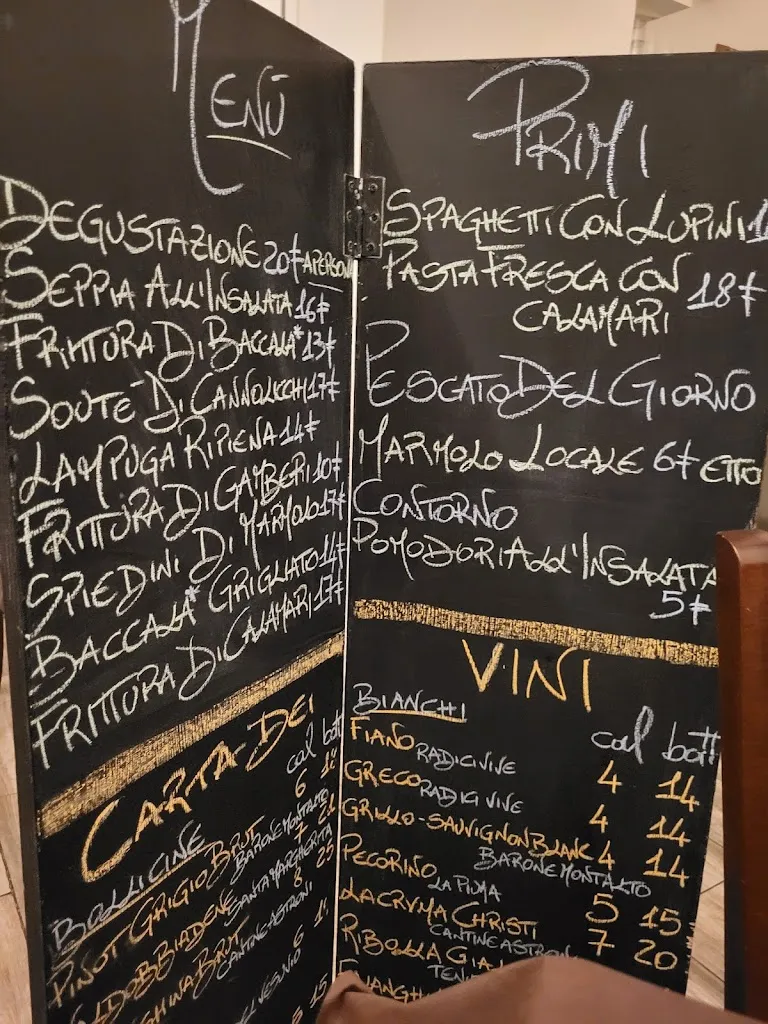 MENÙ
DEGUSTAZIONE 20€ A PERSON
SEPPIA ALL'INSALATA 16€
FRITTURA DI BACCALA* 13€
SOUTÉ DI CANNOLICCHI 17€
LAMPUGA RIPIENA 14€
FRITTURA DI GAMBERI 10€
SPIEDINI DI MARMOLO 17€
BACCALA* GRIGLIATO 14€
FRITTURA DI CALAMARI 17€
CARTA DEI
cal bott
BOLLICINE
PINOT GRIGIO BRUT 6
BARONE MONTALTO
VALDOBBIADENE 7
SANTA MARGHERITA
BRUT 8 25
CANTINE ASTRONI
6
5 15
PRIMI
SPAGHETTI CON LUPINI 1
PASTA FRESCA CON
CALAMARI 18€
PESCATO DEL GIORNO
MARMOLO LOCALE 6€ ETTO
CONTORNO
POMODORI ALL'INSALATA
5€
VINI
BIANCHI cal bott
FIANO RADICI VIVE 4 14
GRECO RADICI VIVE 4 14
GRILLO-SAUVIGNON BLANC 4 14
BARONE MONTALTO
PECORINO 5 15
LA PIUMA
LACRYMA CHRISTI 7 20
CANTINE ASTRONI
RIBOLLA GIA